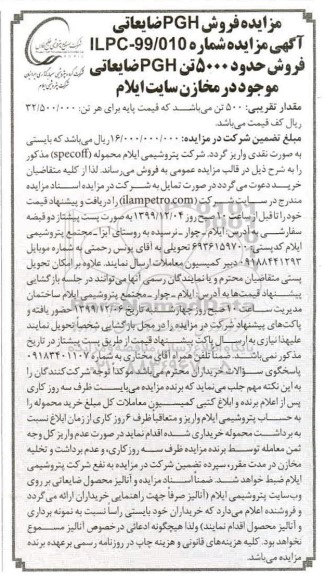 مزایده فروش PGH ضایعاتی
آگهی مزایده شماره ILPC-99/010
فروش حدود ۵۰۰۰ تن PGH ضایعاتی
موجود در مخازن سایت ایلام
مقدار تقریبی: ۵۰۰ تن می‌باشد که قیمت پایه برای هر تن: ۳۲/۵۰۰/۰۰۰
ریال کف قیمت می‌باشد.
مبلغ تضمین شرکت در مزایده: ۱۶/۰۰۰/۰۰۰/۰۰۰ ریال می‌باشد که بایستی
به صورت نقدی واریز گردد. شرکت پتروشیمی ایلام محموله (specoff) مذکور
را به شرح ذیل در قالب مزایده عمومی به فروش می‌رساند. لذا از کلیه متقاضیان
خرید دعوت می‌گردد در صورت تمایل به شرکت در مزایده اسناد مزایده
مندرج در سایت شرکت (ilampetro.com) را دریافت و پیشنهاد قیمت
خود را تا قبل از ساعت ۱۰ صبح روز ۱۳۹۹/۱۲/۰۴ به صورت پست پیشتاز دو قبضه
سفارشی به آدرس: ایلام ـ چوار ـ نرسیده به روستای آیزا ـ مجتمع پتروشیمی
ایلام کدپستی: ۶۹۳۶۱۵۹۷۰۰ تحویلی به آقای یونس رحمتی به شماره موبایل
۰۹۱۸۸۴۴۱۲۹۳ دبیر کمیسیون معاملات ارسال نمایند. علاوه بر امکان تحویل
پستی متقاضیان محترم و یا نمایندگان رسمی آنها می‌توانند در جلسه بازگشایی
پیشنهاد قیمت‌ها به آدرس: ایلام ـ چوار ـ مجتمع پتروشیمی ایلام ساختمان
مدیریت ساعت ۱۰ صبح روز چهارشنبه به تاریخ ۱۳۹۹/۱۲/۰۶ حضور یافته و
پاکت‌های پیشنهاد شرکت در مزایده را در محل بازگشایی شخصاً تحویل نمایند
علیهذا نیازی به ارسال پاکت پیشنهاد قیمت از طریق پست پیشتاز در تاریخ
مذکور نمی‌باشد. ضمناً تلفن همراه آقای مختاری به شماره ۰۹۱۸۳۴۰۱۱۰۷
پاسخگوی سؤالات خریداران محترم می‌باشد. مؤکداً توجه شرکت‌کنندگان را
به این نکته مهم جلب می‌نماید که برنده مزایده می‌بایست ظرف سه روز کاری
پس از اعلام برنده و ابلاغ کتبی کمیسیون معاملات کل مبلغ خرید محموله را
به حساب پتروشیمی ایلام واریز و متعاقباً ظرف ۶ روز کاری از زمان ابلاغ نسبت
به برداشت محموله خریداری شده اقدام نماید در صورت عدم واریز کل وجه
ثمن معامله توسط برنده مزایده ظرف سه روز کاری، و عدم برداشت و تخلیه
مخازن در مدت مقرر، سپرده تضمین شرکت در مزایده به نفع شرکت پتروشیمی
ایلام ضبط خواهد شد. ضمناً اسناد مزایده و آنالیز محصول ضایعاتی بر روی
وب‌سایت پتروشیمی ایلام (آنالیز صرفاً جهت راهنمایی خریداران ارائه می‌گردد
و فروشنده اعلامی دارد که خریداران خود بایستی راساً نسبت به نمونه برداری
و آنالیز محصول اقدام نمایند) ولذا هیچگونه ادعائی در خصوص آنالیز مسموع
نخواهد بود. کلیه هزینه‌های قانونی و هزینه چاپ در روزنامه رسمی برعهده برنده
مزایده می‌باشد.